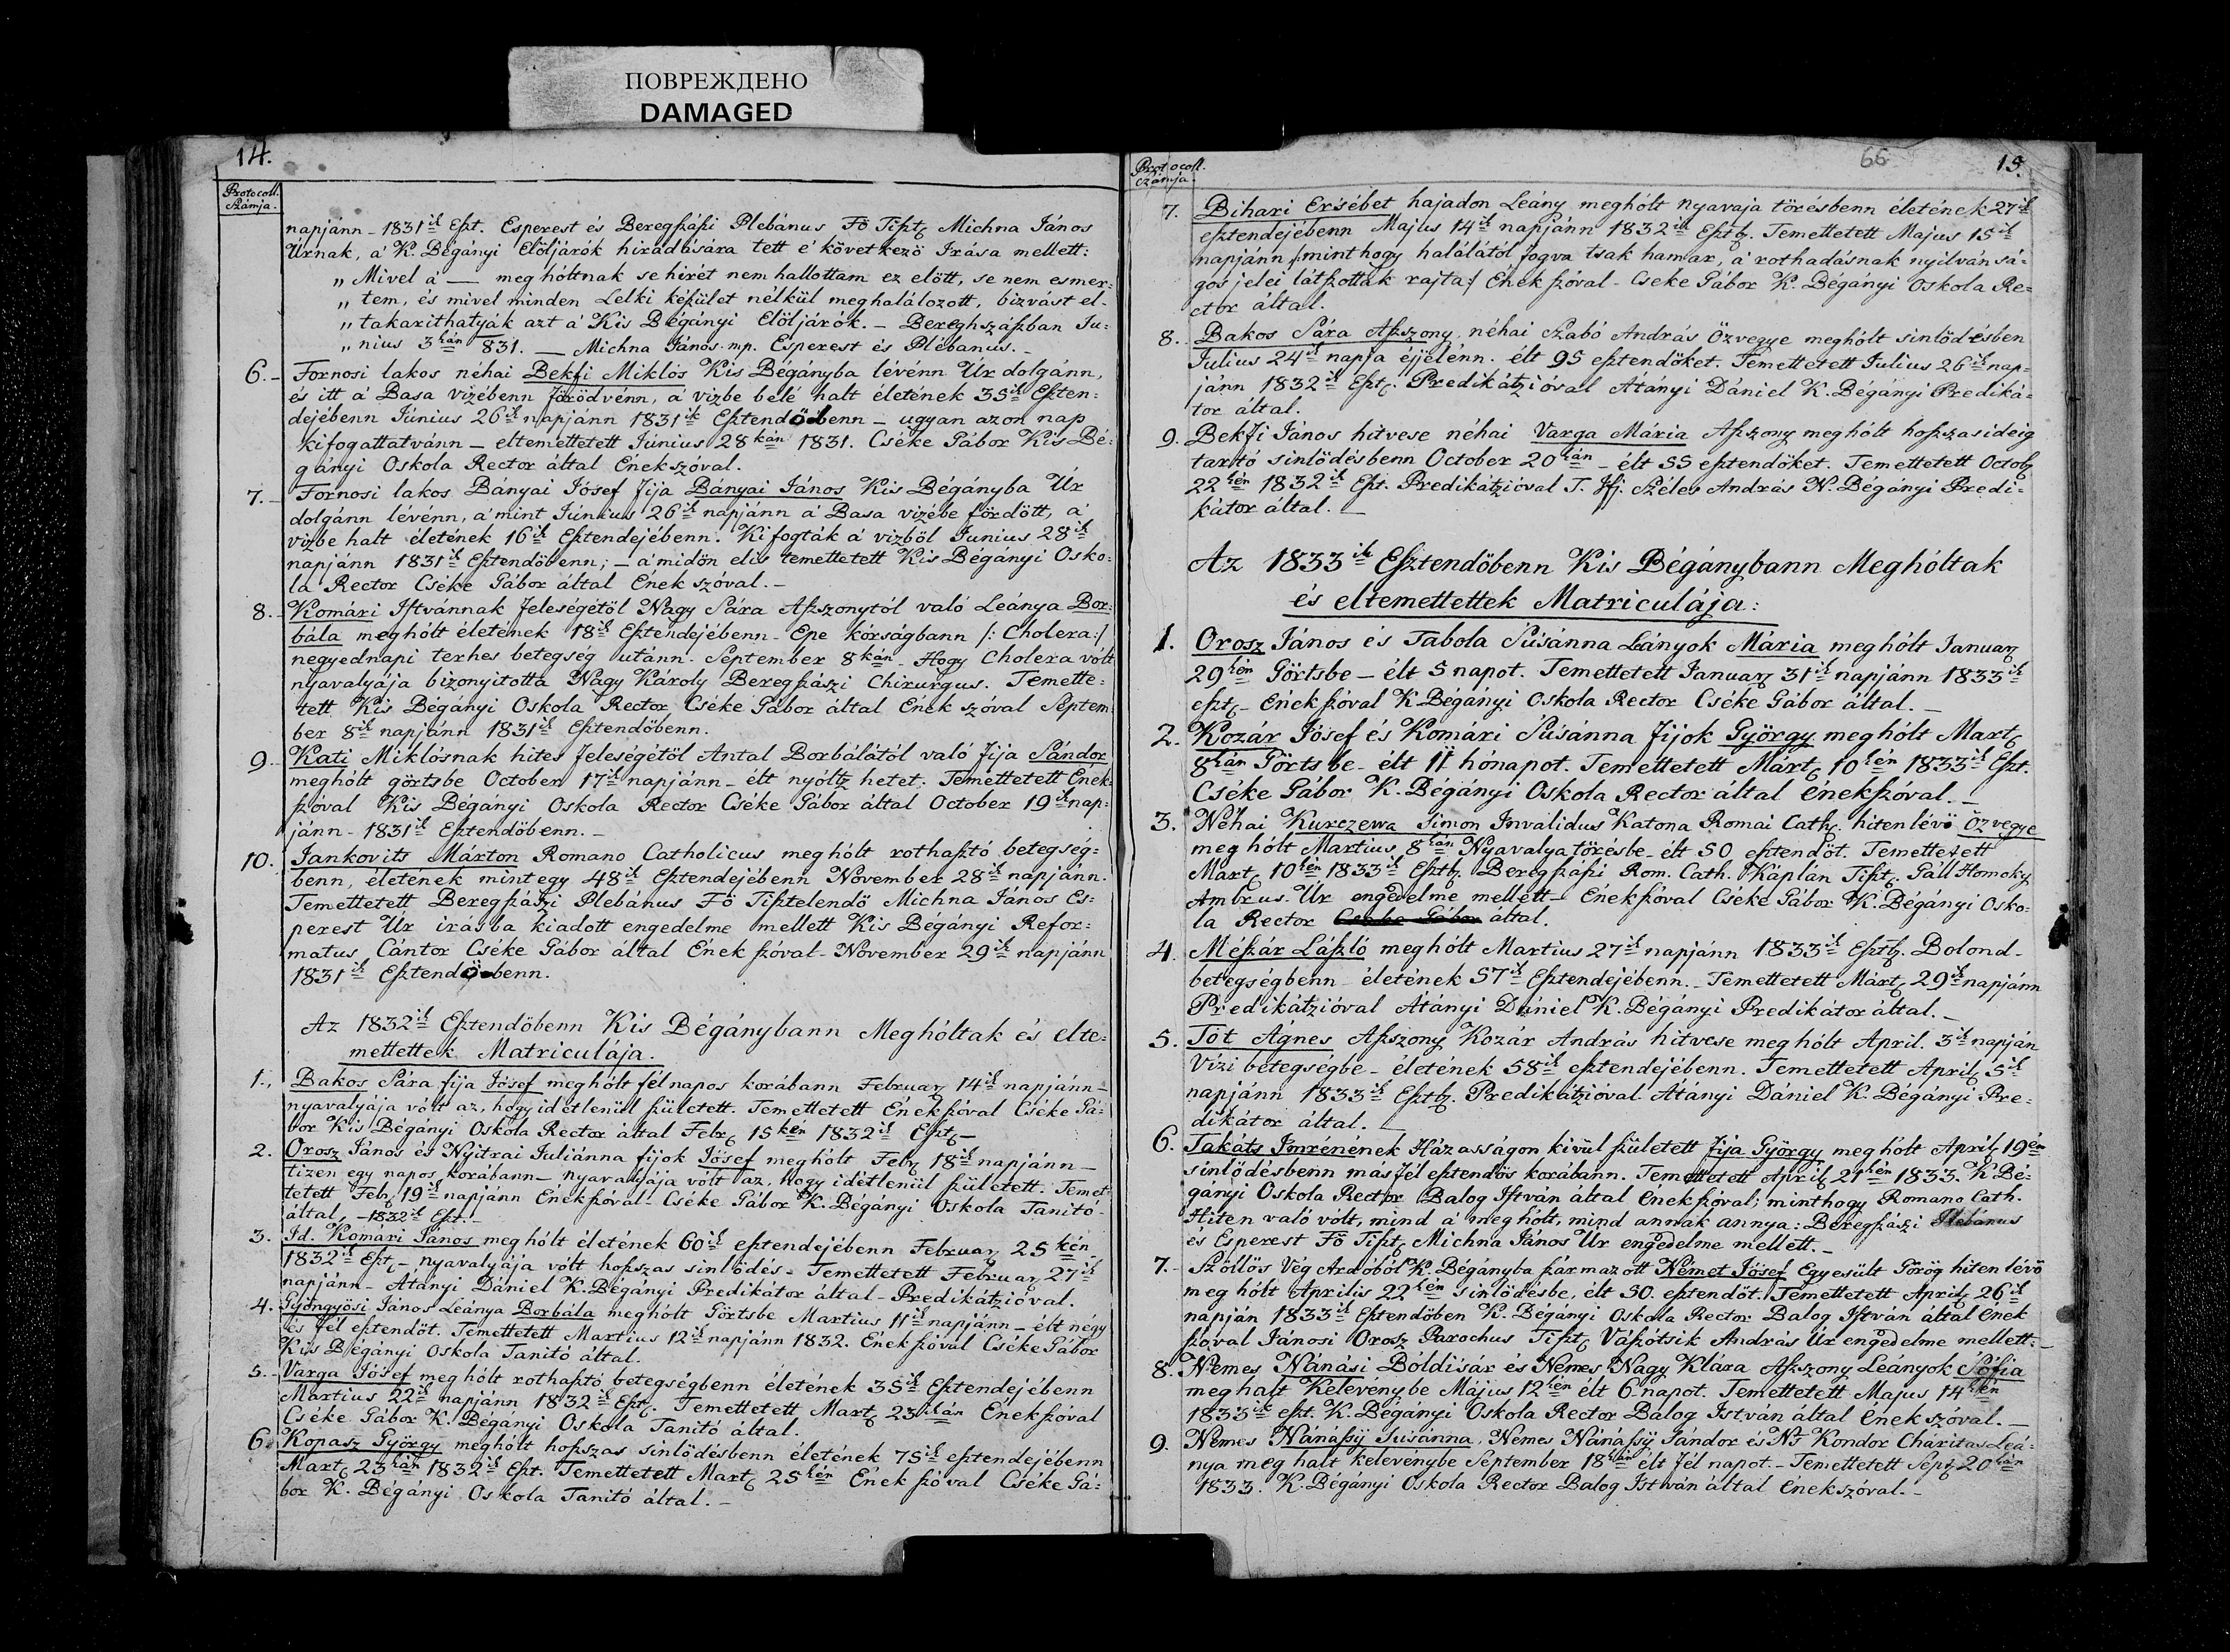 ПОВРЕЖДЕНО
DAMAGED
14.
Protocoll.
Számja.
napjánn - 1831ik Eßt. Esperest és Beregßáßi Plebánus Fö Tißt. Michna János
Úrnak, á K. Bégányi Elöljárók hiradására tett é következö Irása mellett:
„ Mivel á — meg hóltnak se hirét nem hallottam ez elött, se nem esmer=
„ tem, és mivel minden Lelki kéßület nélkül meghalálozott, bizvást el-
„ takarithatyák azt á Kis Bégányi Elöljárók. - Bereghszáßban Ju=
„ nius 3kán 831. — Michna János mp. Esperest és Plébanus. -
6. - Fornosi lakos néhai Bekfi Miklós Kis Bégányba lévénn Úr dolgánn,
és itt á Basa vizébenn förödvénn, á vizbe belé halt életének 35ik Eßten=
dejébenn Június 26ik napjánn 1831ik Eßtendöbenn - ugyan azon nap
kifogattatvánn - eltemettetett Június 28kán 1831. Cséke Gábor Kis Bé-
gányi Oskola Rector által Énekszóval.
7. - Fornosi lakos Bányai Jósef fija Bányai János Kis Bégányba Úr
dolgánn lévénn, á mint Június 26ik napjánn á Basa vizébe fördött, á
vizbe halt életének 16ik Eßtendejébenn. Kifogták á vizböl Junius 28ik
napjánn 1831ik Eßtendöbenn; - á midön elis temettetett Kis Bégányi Osko=
la Rector Cséke Gábor által Ének szóval. -
8. - Komári Istvánnak feleségétöl Nagy Sára Aßszonytól való Leánya Bor=
bála meghólt életének 18ik Eßtendejébenn - Epe kórságbann /: Cholera :/
negyednapi terhes betegség utánn. September 8kán - Hogy Cholera vólt
nyavalyája bizonyitotta Nagy Károly Beregßászi Chirurgus. Temette=
tett Kis Bégányi Oskola Rector Cséke Gábor által Ének szóval Septem
ber 8ik napjánn 1831ik Eßtendöbenn.
9. - Kati Miklósnak hites feleségétöl Antal Borbálától való fija Sándor
meghólt görtsbe October 17ik napjánn - élt nyóltz hetet. Temettetett Ének=
ßóval Kis Bégányi Oskola Rector Cséke Gábor által October 19ik nap=
jánn - 1831ik Eßtendöbenn. -
10. Jankovits Márton Romano Catholicus meghólt rothaßtó betegség=
benn, életének mintegy 48ik Eßtendejébenn November 28ik napjánn.
Temettetett Beregßászi Plebánus Fö Tißtelendö Michna János Es=
perest Úr irásba kiadott engedelme mellett Kis Bégányi Refor=
matus Cántor Cséke Gábor által Ének ßóval - November 29ik napjánn
1831ik Eßtendöbenn.
Az 1832ik Eßtendöbenn Kis Bégánybann Meghóltak és elte=
mettettek Matriculája.
1., Bakos Sára fija Jósef meghólt fél napos korábann Februar 14ik napjánn -
nyavalyája vólt az, hogy idétlenül ßületett. Temettetett Énekßóval Cséke Gá=
bor Kis Bégányi Oskola Rector által Febr. 15kén 1832ik Eßt. -
2. Orosz János és Nyitrai Juliánna fijok Jósef meghólt Feb. 18ik napjánn -
tizen egy napos korábann - nyavalyája vólt az, hogy idétlenül ßületett. Temet=
tetett Feb. 19ik napjánn Énekßóval - Cséke Gábor K. Bégányi Oskola Tanitó
által, - 1832ik Eßt. -
3. Id. Komári János meghólt életének 60ik eßtendejébenn Februar 25kén
1832ik Eßt. - nyavalyája vólt hoßszas sinlödés - Temettetett Februar 27ik
napjánn - Atányi Dániel K. Bégányi Predikátor által - Predikátzióval.
4. Gyöngyösi János Leánya Borbála meghólt Görtsbe Martius 11ik napjánn - élt négy
és fél eßtendöt. Temettetett Martius 12ik napjánn 1832. Énekßóval Cséke Gábor
Kis Bégányi Oskola Tanitó által.
5. - Varga Jósef meghólt rothaßtó betegségbenn életének 35ik Eßtendejébenn
Martius 22ik napjánn 1832ik Eßt. Temettetett Mart. 23ikán Énekßóval
Cséke Gábor K. Bégányi Oskola Tanitó által.
6. Kopasz György meghólt hoßszas sinlödésbenn életének 75ik eßtendejébenn
Mart. 23kán 1832ik Eßt. Temettetett Mart. 25kén Énekßóval Cséke Gá=
bor K. Bégányi Oskola Tanitó által. -
Protocoll.
Számja.
66
15.
7. Bihari Ersébet hajadon Leány meghólt nyavaja törésbenn életének 27ik
eßtendejébenn Majus 14ik napjánn 1832ik Eßt. Temettetett Majus 15ik
napjánn /: mint hogy halálától fogva tsak hamar, á rothadásnak nyilvánsá=
gos jelei látßottak rajta :/ Énekßóval - Cseke Gábor K. Bégányi Oskola Re=
ctor által.
8. Bakos Sára Aßszony, néhai Szabó András Özvegye meghólt sinlödésben
Julius 24ik napja éjjelénn. élt 95 eßtendöket. Temettetett Julius 26ik nap=
jánn 1832ik Eßt. Predikátzióval Atányi Dániel K. Bégányi Prediká=
tor által.
9. Bekfi János hitvese néhai Varga Mária Aßszony meghólt hoßzas ideig
tartó sinlödésbenn October 20kán - élt 55 eßtendöket. Temettetett Octob.
22kén 1832ik Eßt. Predikátzióval T. Ifj. Széles András N. Bégányi Predi=
kátor által. —
Az 1833ik Eßtendöbenn Kis Bégánybann Meghóltak
és eltemettettek Matriculája:
1. Orosz János és Tabola Susánna Lányok Mária meghólt Januar.
29kén Görtsbe - élt 5 napot. Temettetett Januar 31ik napjánn 1833ik
eßt. - Énekßóval K. Bégányi Oskola Rector Cséke Gábor által. -
2. Kozár Jósef és Komári Susánna fijok György meghólt Mart.
8kán Görtsbe - élt 11 hónapot. Temettetett Márt. 10kén 1833ik Eßt.
Cséke Gábor K. Bégányi Oskola Rector által énekßóval. -
3. Néhai Kurczewa Simon Invalidus Katona Romai Cath. hiten lévö Özvegye
meg hólt Martius 8kán Nyavalya törésbe - élt 50 eßtendöt. Temettetett
Mart. 10kén 1833ik Eßt. Beregßáßi Rom. Cath. Káplán Tißt. Páll Homoky
Ambrus Úr engedelme mellett - Énekßóval Cséke Gábor K. Bégányi Osko=
la Rector által.
4. Méßár László meghólt Martius 27ik napjánn 1833ik Eßt. Bolond-
betegségbenn életének 57ik Eßtendejébenn. - Temettetett Márt. 29ik napjánn
Predikátzióval Átányi Dániel K. Bégányi Predikátor által. -
5. Tót Ágnes Aßszony Kozár András hitvese meg hólt April. 3ik napján
Vizi betegségbe - életének 58ik eßtendejébenn. Temettetett April. 5ik
napjánn 1833ik Eßt. Predikátzióval Átányi Dániel K. Bégányi Pre=
dikátor által. —
6. Takáts Imrénének Házasságon kivül ßületett fija György meg hólt April. 19én
sinlödésbenn más fél eßtendös korábann. Temettetett April. 21kén 1833. K. Bé=
gányi Oskola Rector Balog István által énekßóval; minthogy Romano Cath.
Hiten való vólt, mind á meg hólt, mind annak annya: Beregßászi Plebánus
és Esperest Fö Tißt. Michna János Úr engedelme mellett. -
7. - Szöllös Vég Ardóból K. Bégányba ßármazott Német Jósef Egyesült Görög hiten lévö
meg hólt Aprilis 22kén sinlödésbe, élt 50. eßtendöt. Temettetett April. 26ik
napján 1833ik Eßtendöben K. Bégányi Oskola Rector Balog István által ének
ßóval Jánosi Orosz Parochus Tißt. Váßótsik András Úr engedelme mellett. -
8. Nemes Nánási Bóldisár és Nemes Nagy Klara Aßszony Leányok Sófia
meghalt Kelevénybe Május 12kén élt 6 napot. Temettetett Majus 14kén
1833ik eßt. K. Bégányi Oskola Rector Balog István által énekszóval. -
9. Nemes Nánáßÿ Susánna, Nemes Nánáßÿ Sándor és Ns Kondor Cháritas Leá=
nya meg halt kelevénybe September 18kán élt fél napot. - Temettetett Sept. 20kán
1833. K. Bégányi Oskola Rector Balog István által énekszóval. -